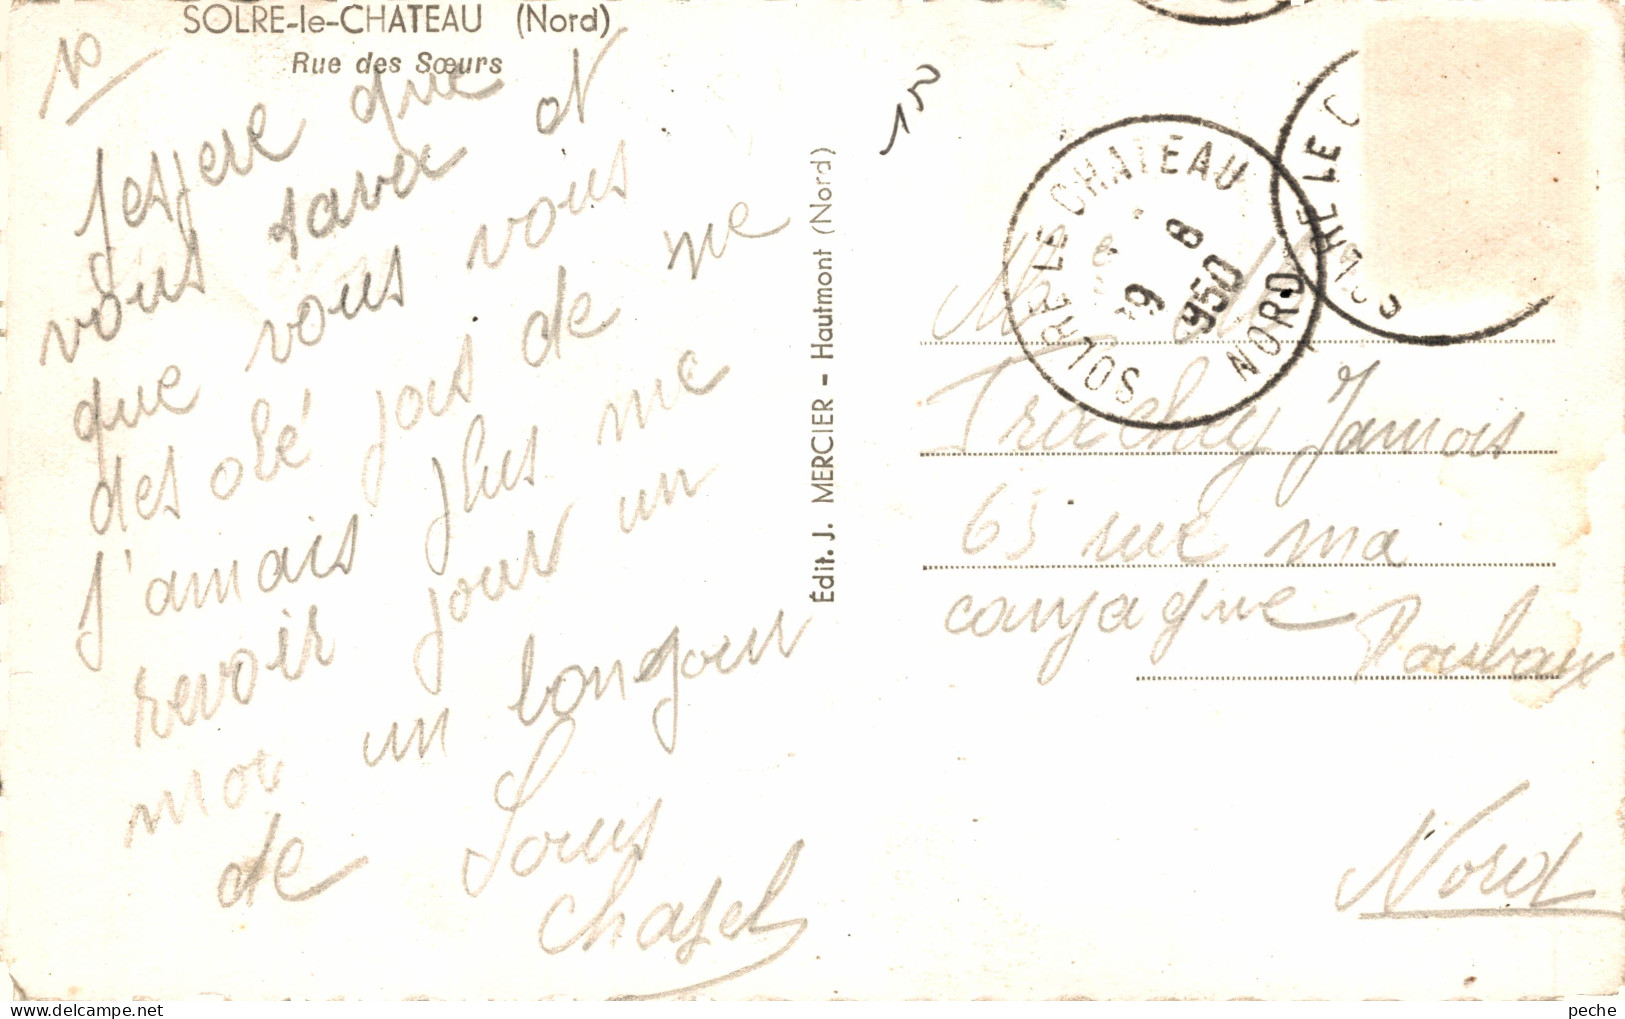 SOLRE-le-CHATEAU (Nord)
Rue des Sœurs
10
Jespere que
vous savez et
que vous vous
des olé jois de me
J'amais plus me
revoir jour un
moi un bonjour
de Louis
Chasel
Édit. J. MERCIER - Hautmont (Nord)
15
SOLRE LE CHATEAU
19 8
950
NORD
SOLRE LE C
M
Trachey Jamois
63 rue ma
canpagne Roubaix
Nord
peche